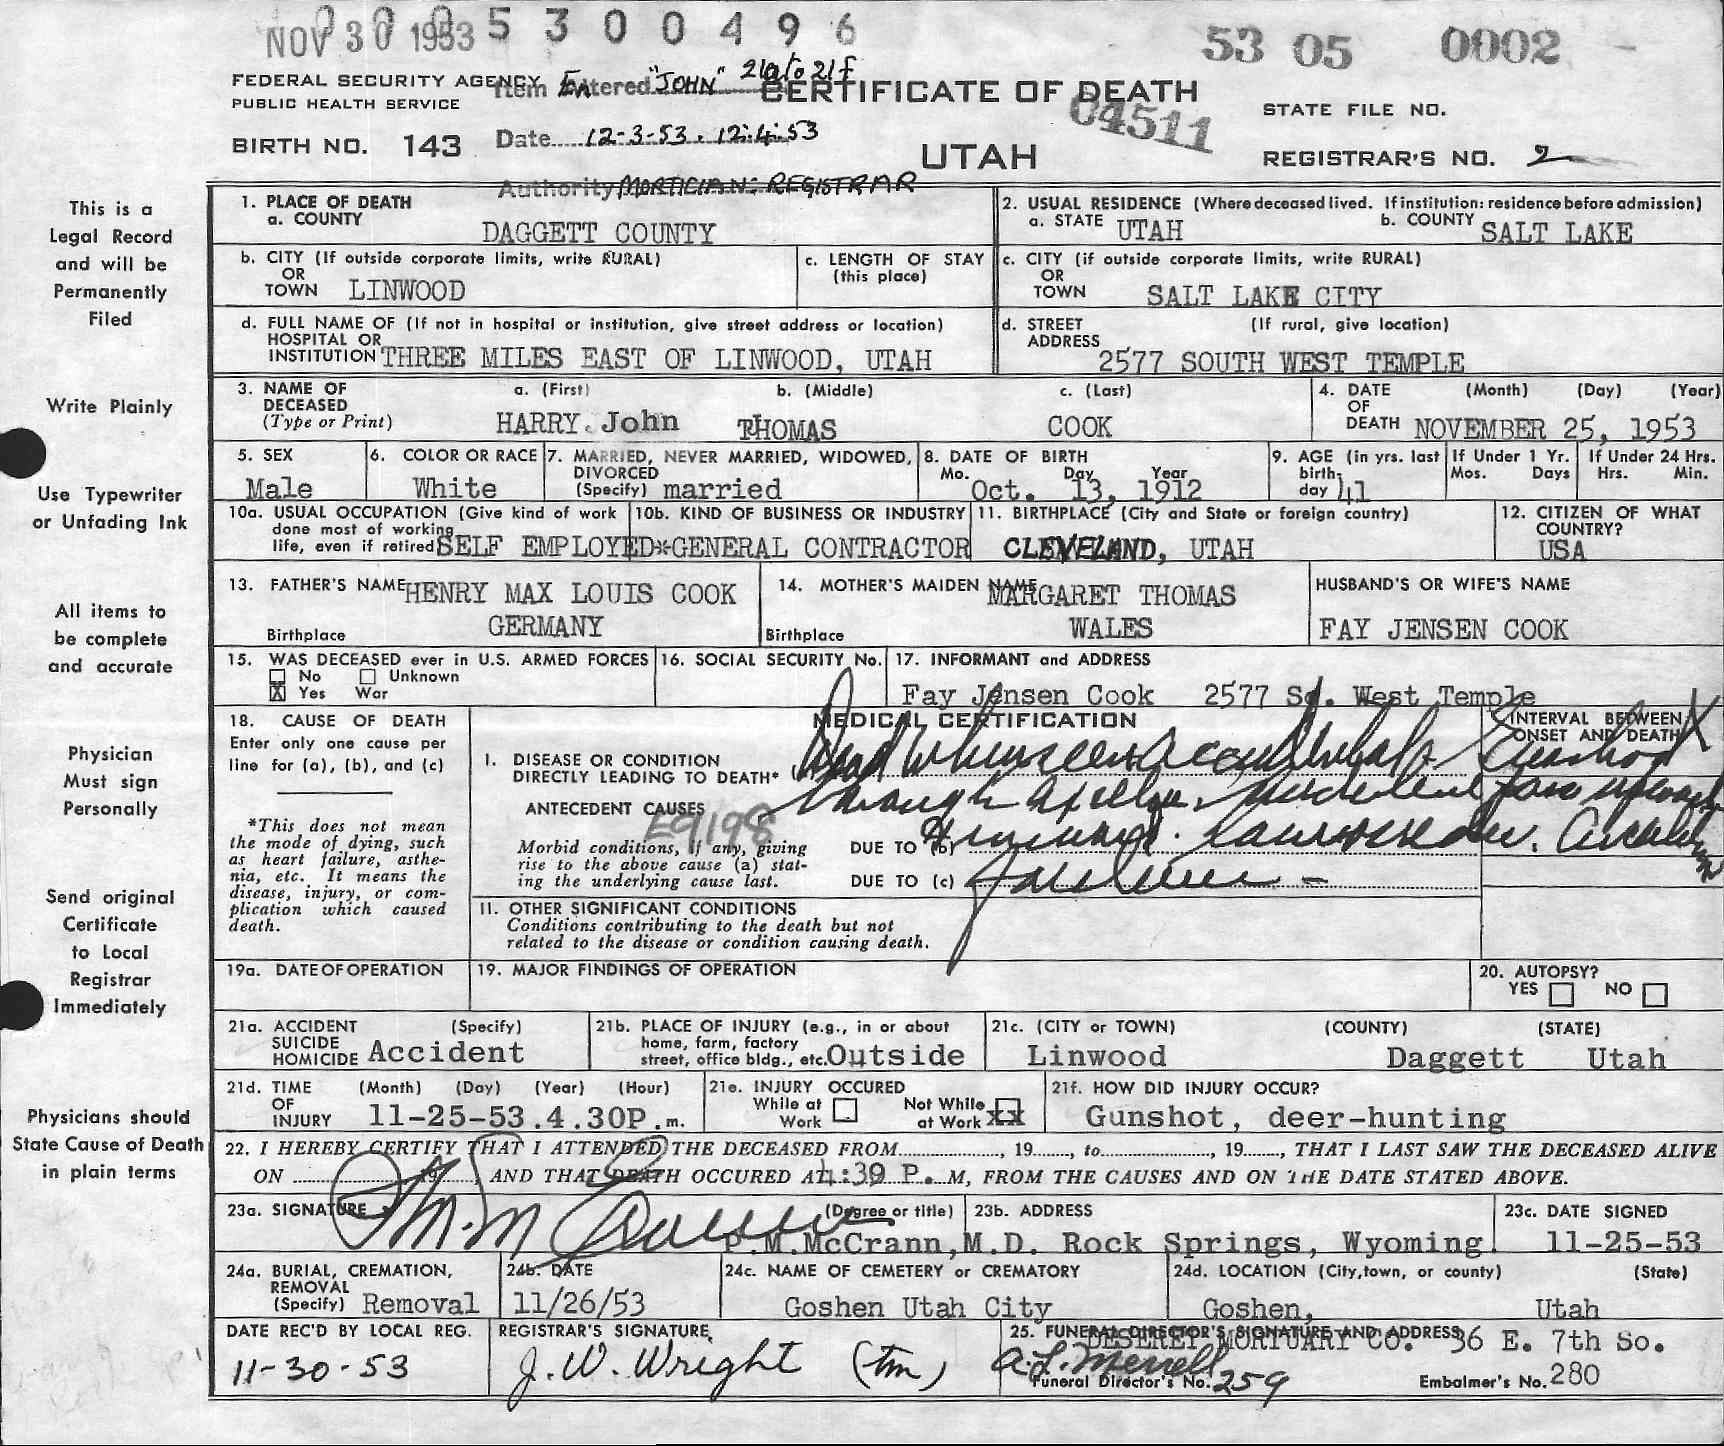 NOV 30 1953
0 0 0 5 3 0 0 4 9 6
53 05 0002
FEDERAL SECURITY AGENCY
PUBLIC HEALTH SERVICE
Item Entered "JOHN" 21a to 21f
CERTIFICATE OF DEATH
04511
STATE FILE NO.
BIRTH NO. 143
Date 12-3-53. 12-4-53
UTAH
REGISTRAR'S NO. 2
Authority MORTICIAN: REGISTRAR
This is a
Legal Record
and will be
Permanently
Filed
Write Plainly
Use Typewriter
or Unfading Ink
All items to
be complete
and accurate
Physician
Must sign
Personally
Send original
Certificate
to Local
Registrar
Immediately
Physicians should
State Cause of Death
in plain terms
1. PLACE OF DEATH
a. COUNTY DAGGETT COUNTY
2. USUAL RESIDENCE (Where deceased lived. If institution: residence before admission)
a. STATE UTAH b. COUNTY SALT LAKE
b. CITY (If outside corporate limits, write RURAL)
OR
TOWN LINWOOD
c. LENGTH OF STAY
(this place)
c. CITY (if outside corporate limits, write RURAL)
OR
TOWN SALT LAKE CITY
d. FULL NAME OF (If not in hospital or institution, give street address or location)
HOSPITAL OR
INSTITUTION THREE MILES EAST OF LINWOOD, UTAH
d. STREET (If rural, give location)
ADDRESS
2577 SOUTH WEST TEMPLE
3. NAME OF DECEASED
(Type or Print)
a. (First) b. (Middle) c. (Last)
HARRY John THOMAS COOK
4. DATE (Month) (Day) (Year)
OF
DEATH NOVEMBER 25, 1953
5. SEX
Male
6. COLOR OR RACE
White
7. MARRIED, NEVER MARRIED, WIDOWED,
DIVORCED
(Specify) married
8. DATE OF BIRTH
Mo. Day Year
Oct. 13, 1912
9. AGE (in yrs. last
birth-
day 41
If Under 1 Yr.
Mos. Days
If Under 24 Hrs.
Hrs. Min.
10a. USUAL OCCUPATION (Give kind of work
done most of working
life, even if retired SELF EMPLOYED*GENERAL CONTRACTOR
10b. KIND OF BUSINESS OR INDUSTRY
11. BIRTHPLACE (City and State or foreign country)
CLEVELAND, UTAH
12. CITIZEN OF WHAT
COUNTRY?
USA
13. FATHER'S NAME HENRY MAX LOUIS COOK
Birthplace GERMANY
14. MOTHER'S MAIDEN NAME MARGARET THOMAS
Birthplace WALES
HUSBAND'S OR WIFE'S NAME
FAY JENSEN COOK
15. WAS DECEASED ever in U.S. ARMED FORCES
No Unknown
X Yes War
16. SOCIAL SECURITY No.
17. INFORMANT and ADDRESS
Fay Jensen Cook 2577 So. West Temple
18. CAUSE OF DEATH
Enter only one cause per
line for (a), (b), and (c)
*This does not mean
the mode of dying, such
as heart failure, asthe-
nia, etc. It means the
disease, injury, or com-
plication which caused
death.
MEDICAL CERTIFICATION
INTERVAL BETWEEN
ONSET AND DEATH
I. DISEASE OR CONDITION
DIRECTLY LEADING TO DEATH*
Dead when seen
Gunshot
through
ANTECEDENT CAUSES
E9198
Morbid conditions, if any, giving
rise to the above cause (a) stat-
ing the underlying cause last.
DUE TO (b)
DUE TO (c)
11. OTHER SIGNIFICANT CONDITIONS
Conditions contributing to the death but not
related to the disease or condition causing death.
19a. DATE OF OPERATION
19. MAJOR FINDINGS OF OPERATION
20. AUTOPSY?
YES NO
21a. ACCIDENT (Specify)
SUICIDE
HOMICIDE Accident
21b. PLACE OF INJURY (e.g., in or about
home, farm, factory
street, office bldg., etc. Outside
21c. (CITY or TOWN) (COUNTY) (STATE)
Linwood Daggett Utah
21d. TIME (Month) (Day) (Year) (Hour)
OF
INJURY 11-25-53.4.30P.m.
21e. INJURY OCCURED
While at Work
Not While at Work xx
21f. HOW DID INJURY OCCUR?
Gunshot, deer-hunting
22. I HEREBY CERTIFY THAT I ATTENDED THE DECEASED FROM, 19, to, 19, THAT I LAST SAW THE DECEASED ALIVE
ON 19, AND THAT DEATH OCCURED AT 4:30 P. M, FROM THE CAUSES AND ON THE DATE STATED ABOVE.
23a. SIGNATURE (Degree or title)
P.M.McCrann, M.D.
23b. ADDRESS
Rock Springs, Wyoming
23c. DATE SIGNED
11-25-53
24a. BURIAL, CREMATION,
REMOVAL
(Specify) Removal
24b. DATE
11/26/53
24c. NAME OF CEMETERY or CREMATORY
Goshen Utah City
24d. LOCATION (City, town, or county) (State)
Goshen, Utah
DATE REC'D BY LOCAL REG.
11-30-53
REGISTRAR'S SIGNATURE
J. W. Wright (tm)
25. FUNERAL DIRECTOR'S SIGNATURE AND ADDRESS
DESERET MORTUARY CO. 36 E. 7th So.
A. L. Merrell
Funeral Director's No. 259
Embalmer's No. 280